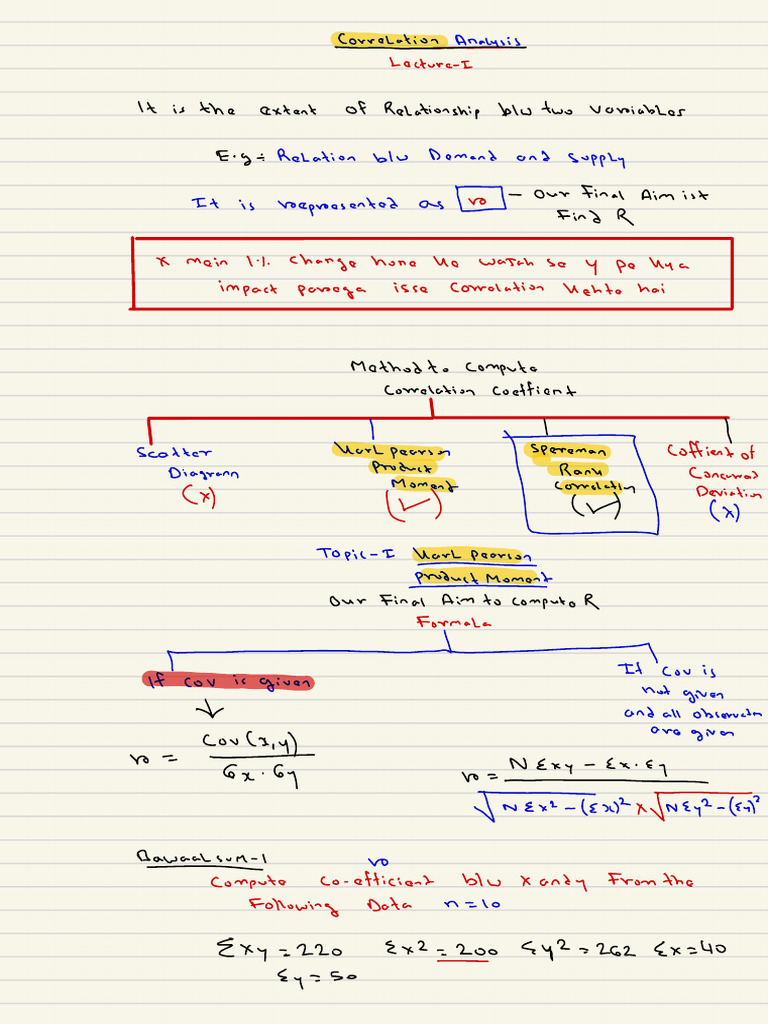 Correlation Analysis
Lecture-I
It is the extent of Relationship b/w two variables
E.g:- Relation b/w Demand and Supply
It is represented as r - Our Final Aim is t
Find R
X main 1% change hone ke wajah se y pe kya
impact parega isse Correlation kehte hai
Method to Compute
Correlation Coeffient
Scatter
Diagram
(x)
Karl Pearson
Product
Moment
(✓)
Spereman
Rank
Correlation
(✓)
Coffient of
Concurred
Deviation
(x)
Topic-I Karl Pearson
Product Moment
Our Final Aim to Compute R
Formala
If Cov is given
r = Cov(x,y) / σx·σy
If Cov is
not given
and all observation
are given
r = NΣxy - Σx·Σy / √NΣx²-(Σx)² × √NΣy²-(Σy)²
Bawaal sum-1
r
Compute Co-efficient b/w x and y From the
Following Data n=10
Σxy=220 Σx2=200 Σy2=262 Σx=40
Σy=50